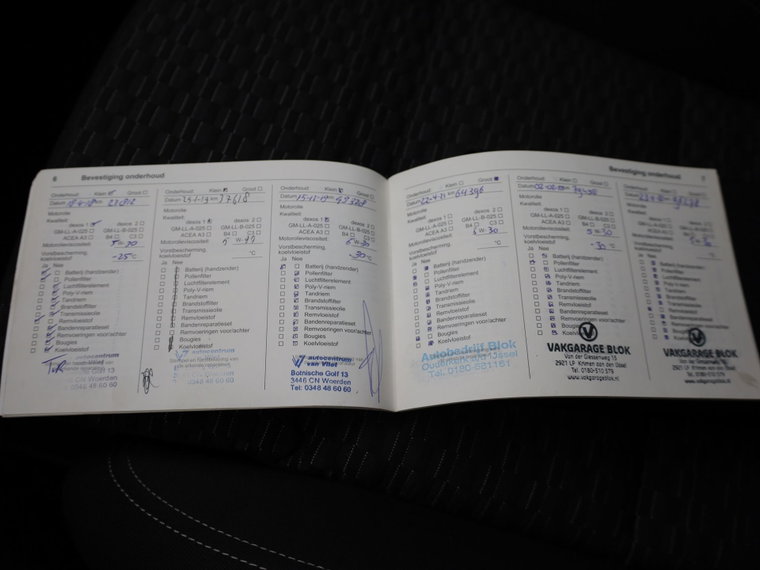 6 Bevestiging onderhoud
Onderhoud: Klein Groot
Datum km
Motorolie
Kwaliteit:
dexos 1 dexos 2
GM-LL-A-025 GM-LL-B-025
ACEA A3 B4 C3
Motorolieviscositeit:
5-30
Vorstbescherming,
koelvloeistof -25 °C
Ja Nee
Batterij (handzender)
Pollenfilter
Luchtfilterelement
Poly-V-riem
Tandriem
Brandstoffilter
Transmissieolie
Remvloeistof
Bandenreparatieset
Remvoeringen voor/achter
Bougies
Koelvloeistof
autocentrum
van Vliet
Golf 13
CN Woerden
0348 48 60 60
Onderhoud: Klein Groot
Datum km 37618
Motorolie
Kwaliteit:
dexos 1 dexos 2
GM-LL-A-025 GM-LL-B-025
ACEA A3 B4 C3
Motorolieviscositeit:
Vorstbescherming,
koelvloeistof °C
Ja Nee
Batterij (handzender)
Pollenfilter
Luchtfilterelement
Poly-V-riem
Tandriem
Brandstoffilter
Transmissieolie
Remvloeistof
Bandenreparatieset
Remvoeringen voor/achter
Bougies
Koelvloeistof
autocentrum
van Vliet
CN Woerden
0348 48 60 60
Onderhoud: Klein Groot
Datum km
Motorolie
Kwaliteit:
dexos 1 dexos 2
GM-LL-A-025 GM-LL-B-025
ACEA A3 B4 C3
Motorolieviscositeit:
Vorstbescherming,
koelvloeistof -30 °C
Ja Nee
Batterij (handzender)
Pollenfilter
Luchtfilterelement
Poly-V-riem
Tandriem
Brandstoffilter
Transmissieolie
Remvloeistof
Bandenreparatieset
Remvoeringen voor/achter
Bougies
Koelvloeistof
autocentrum
van Vliet
Botnische Golf 13
3446 CN Woerden
Tel: 0348 48 60 60
Bevestiging onderhoud 7
Onderhoud: Klein Groot
Datum 22-4-21 km 64396
Motorolie
Kwaliteit:
dexos 1 dexos 2
GM-LL-A-025 GM-LL-B-025
ACEA A3 B4 C3
Motorolieviscositeit:
5W-30
Vorstbescherming,
koelvloeistof °C
Ja Nee
Batterij (handzender)
Pollenfilter
Luchtfilterelement
Poly-V-riem
Tandriem
Brandstoffilter
Transmissieolie
Remvloeistof
Bandenreparatieset
Remvoeringen voor/achter
Bougies
Koelvloeistof
Autobedrijf Blok
Ouderkerk a/d IJssel
Tel. 0180-681161
Onderhoud: Klein Groot
Datum km
Motorolie
Kwaliteit:
dexos 1 dexos 2
GM-LL-A-025 GM-LL-B-025
ACEA A3 B4 C3
Motorolieviscositeit:
5W30
Vorstbescherming,
koelvloeistof -30 °C
Ja Nee
Batterij (handzender)
Pollenfilter
Luchtfilterelement
Poly-V-riem
Tandriem
Brandstoffilter
Transmissieolie
Remvloeistof
Bandenreparatieset
Remvoeringen voor/achter
Bougies
VAKGARAGE BLOK
Van der Giessenweg 15
2921 LP Krimpen aan den IJssel
Tel. 0180-510 579
www.vakgarageblok.nl
Onderhoud: Klein Groot
Datum km
Motorolie
Kwaliteit:
dexos 1 dexos 2
GM-LL-A-025 GM-LL-B-025
ACEA A3 B4 C3
Motorolieviscositeit:
Vorstbescherming,
koelvloeistof °C
Ja Nee
Batterij (handzender)
Pollenfilter
Luchtfilterelement
Poly-V-riem
Tandriem
Brandstoffilter
Transmissieolie
Remvloeistof
Bandenreparatieset
Remvoeringen voor/achter
Bougies
VAKGARAGE BLOK
Van der Giessenweg 15
2921 LP Krimpen aan den IJssel
Tel. 0180-510 579
www.vakgarageblok.nl